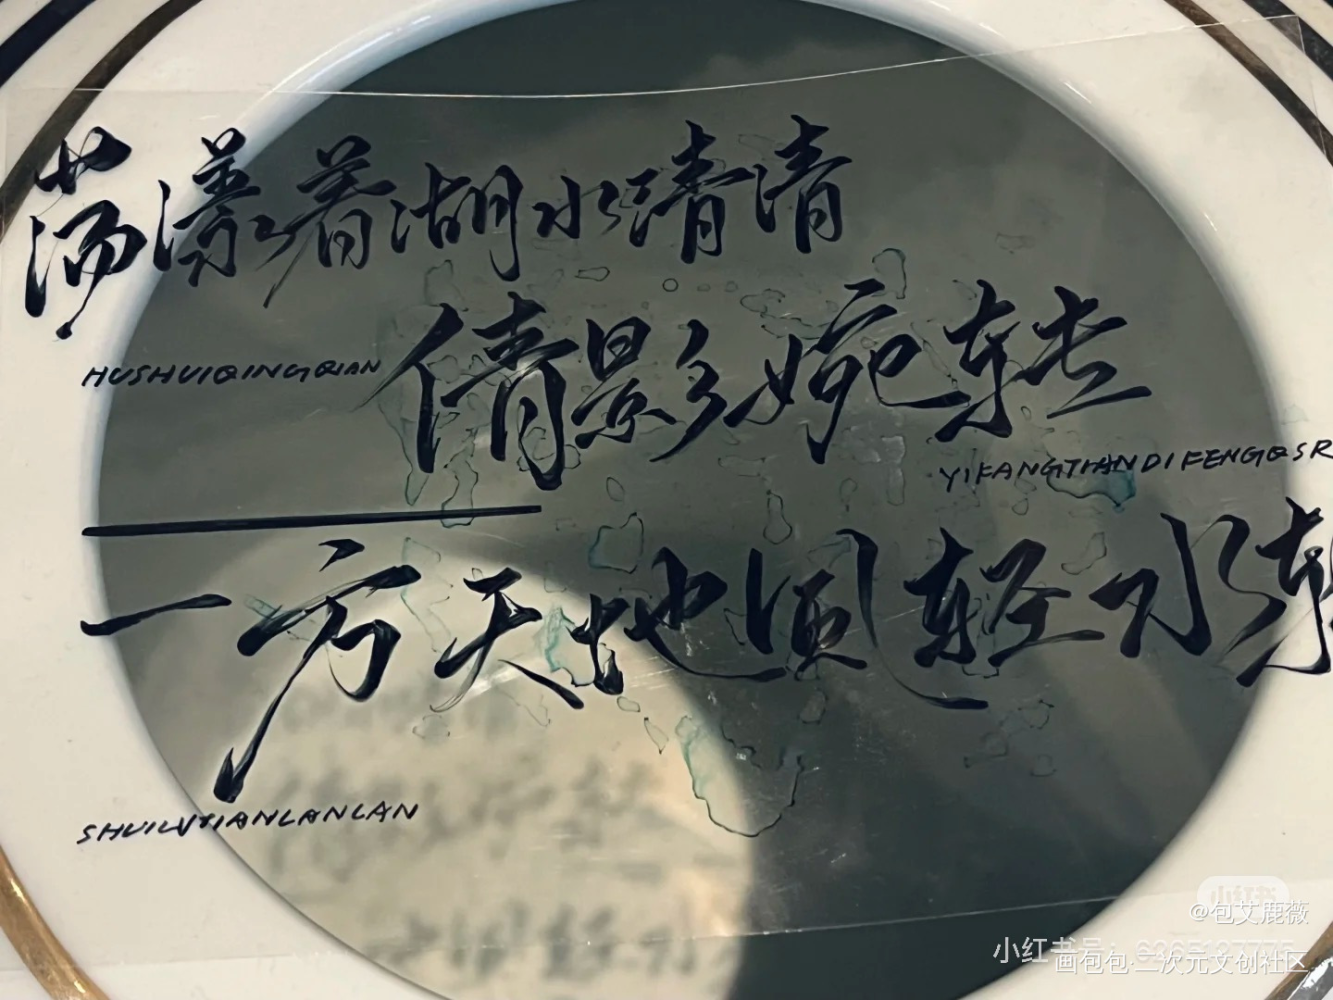 荡漾着湖水清清
HUSHUIQINGQIAN
倩影婉转
YIFANGTIANDIFENGQSR
一方天地风轻水
SHUILVTIANLANLAN
小红书
@包艾鹿薇
小红书号:
画包包·二次元文创社区